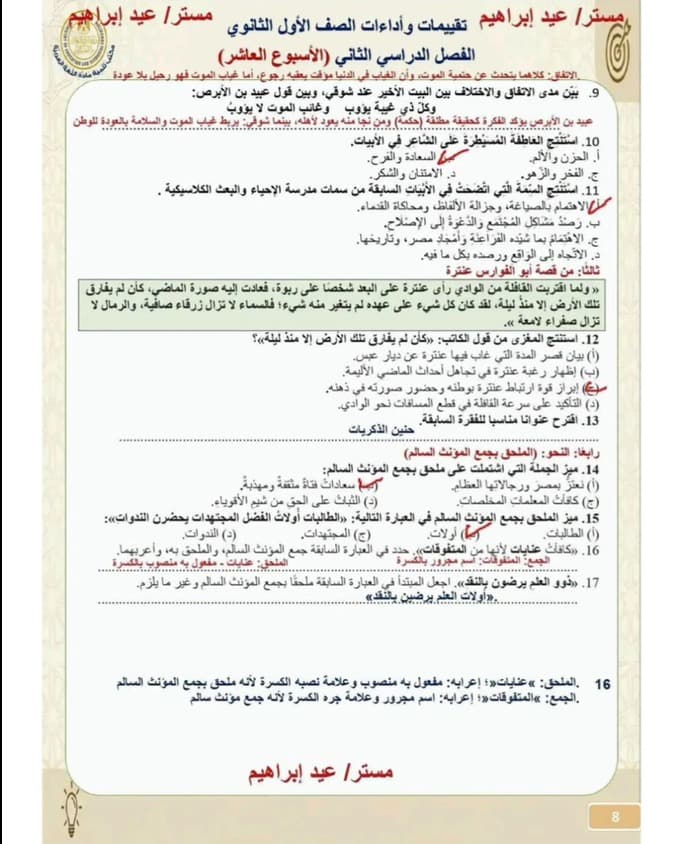 مستر/ عيد إبراهيم
تقييمات وأداءات الصف الأول الثانوي
مستر/ عيد إبراهيم
الفصل الدراسي الثاني (الأسبوع العاشر)
الاتفاق: كلاهما يتحدث عن حتمية الموت، وأن الغياب في الدنيا مؤقت يعقبه رجوع، أما غياب الموت فهو رحيل بلا عودة
9. بيّن مدى الاتفاق والاختلاف بين البيت الأخير عند شوقي، وبين قول عبيد بن الأبرص:
وكل ذي غيبة يؤوب وغائب الموت لا يؤوب
عبيد بن الأبرص يؤكد الفكرة كحقيقة مطلقة (حكمة) ومن نجا منه يعود لأهله، بينما شوقي: يربط غياب الموت والسلامة بالعودة للوطن
10. استنتج العاطفة المسيطرة على الشاعر في الأبيات.
أ. الحزن والألم.
ب. السعادة والفرح.
ج. الفخر والزهو.
د. الامتنان والشكر.
11. استنتج السمة التي اتضحت في الأبيات السابقة من سمات مدرسة الإحياء والبعث الكلاسيكية.
أ. الاهتمام بالصياغة، وجزالة الألفاظ، ومحاكاة القدماء.
ب. رصد مشاكل المجتمع والدعوة إلى الإصلاح.
ج. الاهتمام بما شيده الفراعنة وأمجاد مصر، وتاريخها.
د. الاتجاه إلى الواقع ورصده بكل ما فيه.
ثالثا: من قصة أبو الفوارس عنترة
« ولما اقتربت القافلة من الوادي رأى عنترة على البعد شخصا على ربوة، فعادت إليه صورة الماضي، كأن لم يفارق
تلك الأرض إلا منذ ليلة، لقد كان كل شيء على عهده لم يتغير منه شيء؛ فالسماء لا تزال زرقاء صافية، والرمال لا
تزال صفراء لامعة ».
12. استنتج المغزى من قول الكاتب: «كأن لم يفارق تلك الأرض إلا منذ ليلة»؟
(أ) بيان قصر المدة التي غاب فيها عنترة عن ديار عبس.
(ب) إظهار رغبة عنترة في تجاهل أحداث الماضي الأليمة.
(ج) إبراز قوة ارتباط عنترة بوطنه وحضور صورته في ذهنه.
(د) التأكيد على سرعة القافلة في قطع المسافات نحو الوادي.
13. اقترح عنوانا مناسبا للفقرة السابقة.
حنين الذكريات
رابعا: النحو: (الملحق بجمع المؤنث السالم)
14. ميز الجملة التي اشتملت على ملحق بجمع المؤنث السالم:
(أ) نعتز بمصر ورجالاتها العظام.
(ب) سعادات فتاة مثقفة ومهذبة.
(ج) كافأت المعلمات المخلصات.
(د) الثبات على الحق من شيم الأقوياء.
15. ميز الملحق بجمع المؤنث السالم في العبارة التالية: «الطالبات أولات الفضل المجتهدات يحضرن الندوات»:
(أ) الطالبات.
(ب) أولات.
(ج) المجتهدات.
(د) الندوات.
16. «كافأت عنايات لأنها من المتفوقات». حدد في العبارة السابقة جمع المؤنث السالم، والملحق به، وأعربهما.
الجمع: المتفوقات: اسم مجرور بالكسرة
الملحق: عنايات - مفعول به منصوب بالكسرة
17. «ذوو العلم يرضون بالنقد». اجعل المبتدأ في العبارة السابقة ملحقا بجمع المؤنث السالم وغير ما يلزم.
«أولات العلم يرضين بالنقد».
16 الملحق: «عنايات»؛ إعرابه: مفعول به منصوب وعلامة نصبه الكسرة لأنه ملحق بجمع المؤنث السالم.
الجمع: «المتفوقات»؛ إعرابه: اسم مجرور وعلامة جره الكسرة لأنه جمع مؤنث سالم.
مستر/ عيد إبراهيم
8